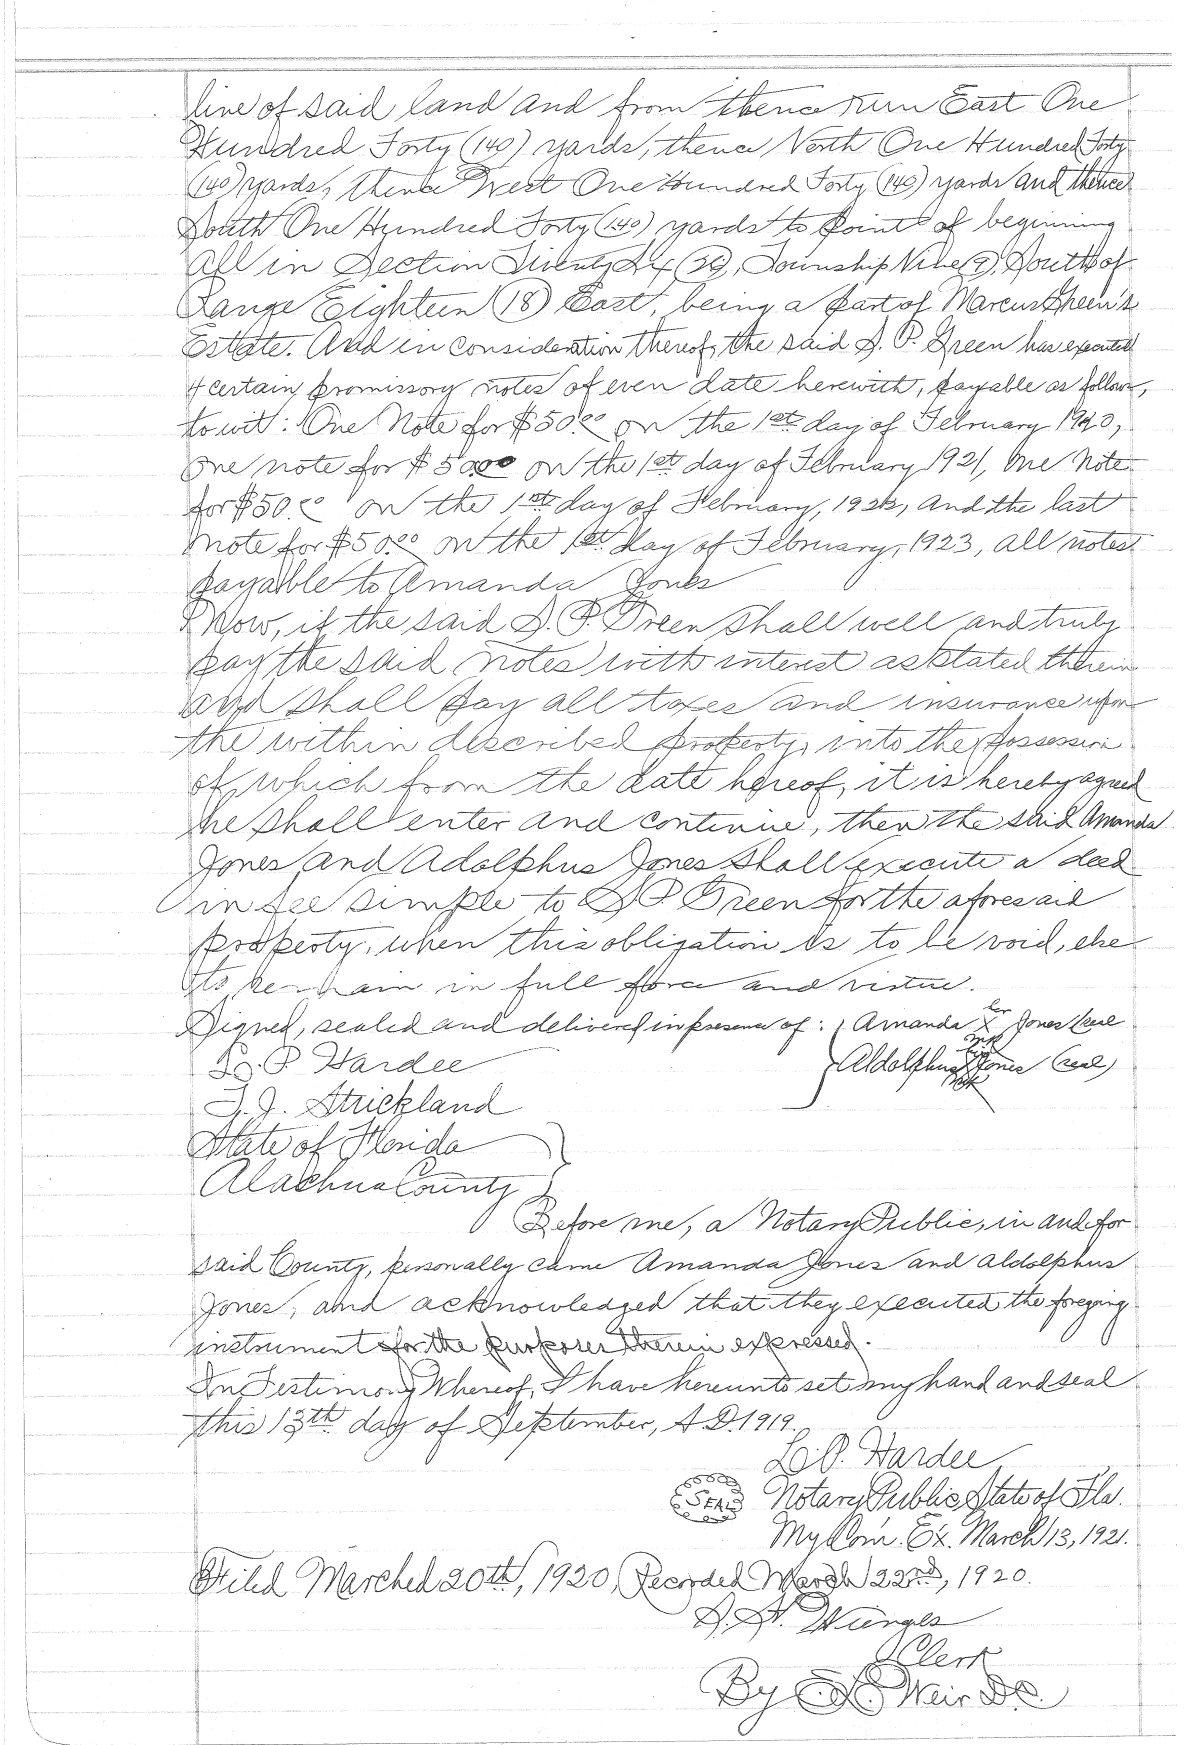 line of said land and from thence run East One
Hundred Forty (140) yards, thence North One Hundred Forty
(140) yards, thence West One Hundred Forty (140) yards and thence
South One Hundred Forty (140) yards to point of beginning
all in Section Twenty Six (26), Township Nine (9) South of
Range Eighteen (18) East, being a part of Marcus Green's
Estate. And in consideration thereof, the said S. P. Green has executed
4 certain promissory notes of even date herewith, payable as follows,
to wit: One Note for $50.00 on the 1st day of February 1920,
one note for $50.00 on the 1st day of February 1921, One Note
for $50.00 on the 1st day of February, 1922, and the last
note for $50.00 on the 1st day of February, 1923, all notes
payable to Amanda Jones
Now, if the said S. P. Green shall well and truly
pay the said notes with interest as stated therein
and shall pay all taxes and insurance upon
the within described property, into the possession
of which from the date hereof, it is hereby agreed
he shall enter and continue, then the said Amanda
Jones and Adolphus Jones shall execute a deed
in fee simple to S P Green for the aforesaid
property, when this obligation is to be void, else
to remain in full force and virtue.
Signed, sealed and delivered in presence of: Amanda her X mk Jones (seal
L. P. Hardee Aldolphus his X mk Jones (seal)
T. J. Strickland
State of Florida
Alachua County
Before me, a Notary Public, in and for
said County, personally came Amanda Jones and Aldolphus
Jones, and acknowledged that they executed the foregoing
instrument for the purposes therein expressed.
In Testimony Whereof, I have hereunto set my hand and seal
this 13th day of September, A.D. 1919.
L. P. Hardee
SEAL Notary Public State of Fla.
My Com. Ex. March 13, 1921.
Filed Marched 20th, 1920, Recorded March 22nd, 1920.
S. H. Wienges
Clerk
By Weir D.C.